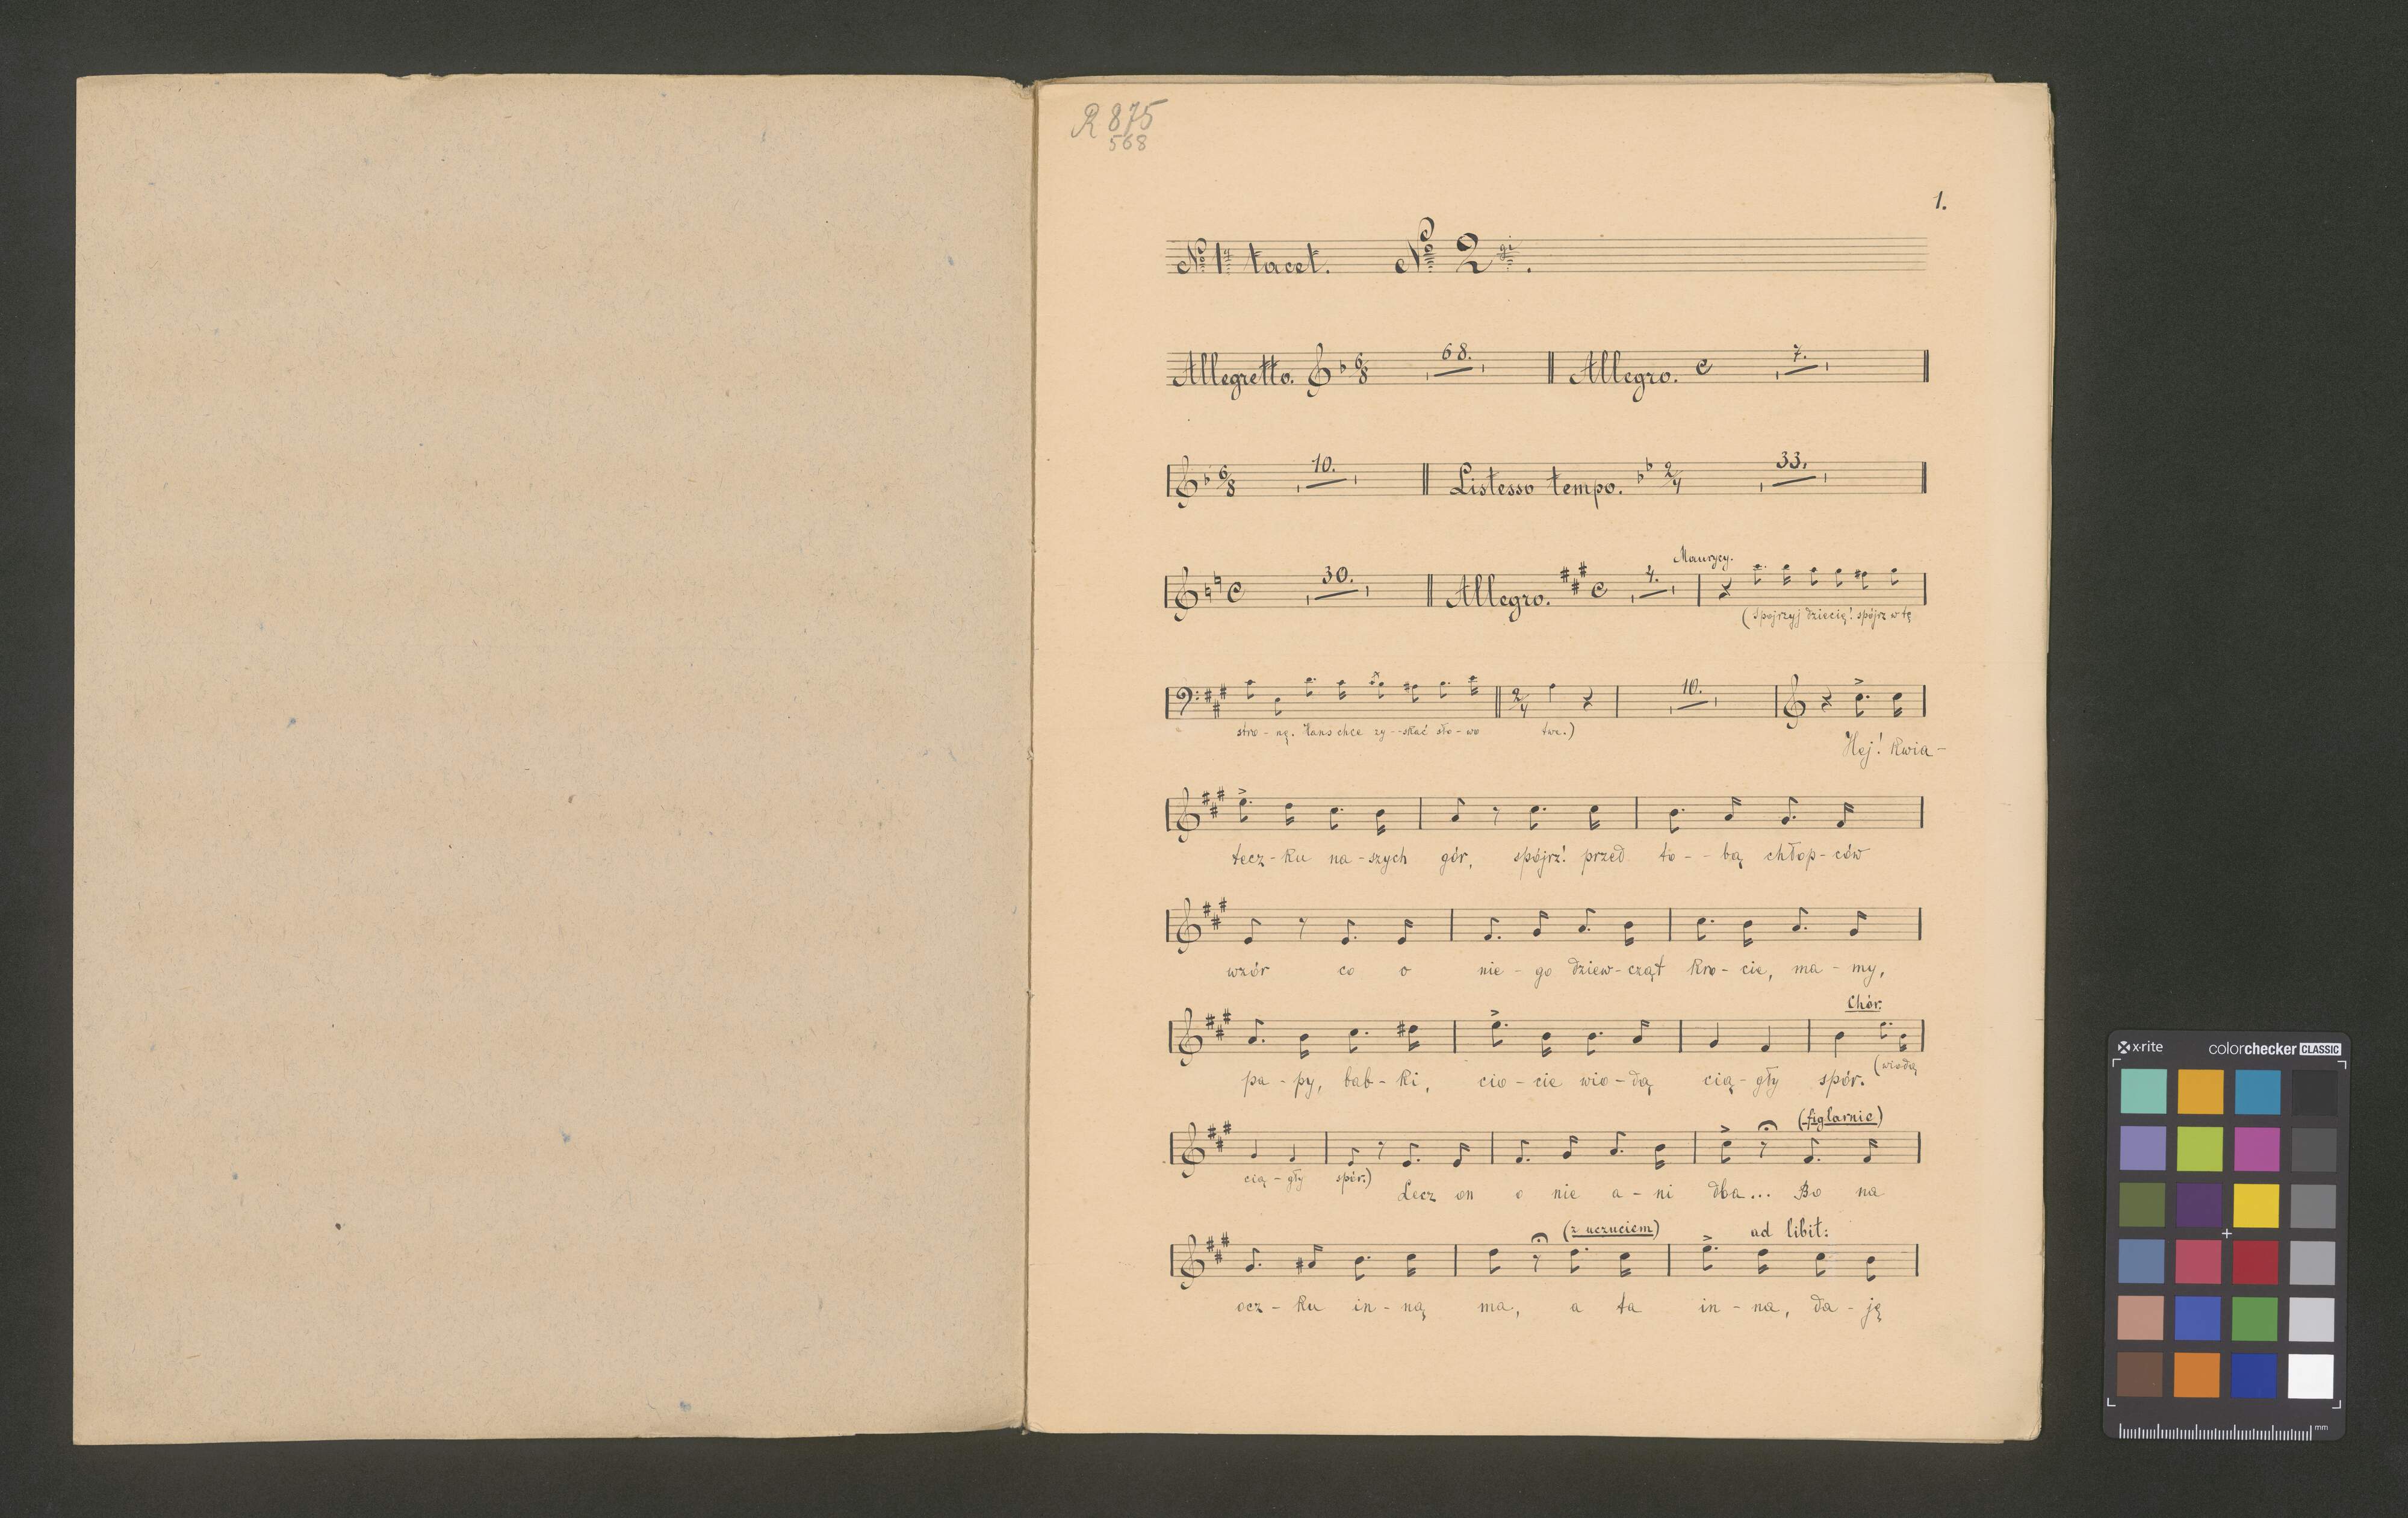 R 875
568
1.
No 1 tacet. No 2.
Allegretto. 6/8 68. Allegro. C 7.
6/8 10. Listesso tempo. 2/4 33.
Maurycy.
C 30. Allegro. C 4.
(Spojrzyj dziecię! spójrz w tę
10.
2/4
stro - nę. Hans chce zy - - skać sło - wo twe.)
Hej! Kwia -
tecz - ku na - szych gór, spójrz! przed to - - bą chłop - ców
wzór co o nie - go dziew - cząt kro - cie, ma - my,
Chór.
pa - py, bab - ki, cio - cie wio - dą cią - gły spór. (wiodą
(figlarnie)
cią - gły spór.) Lecz on o nie a - ni dba... Bo na
(z uczuciem) ad libit:
ocz - ku in - ną ma, a ta in - na, da - ję
x-rite colorchecker CLASSIC
mm